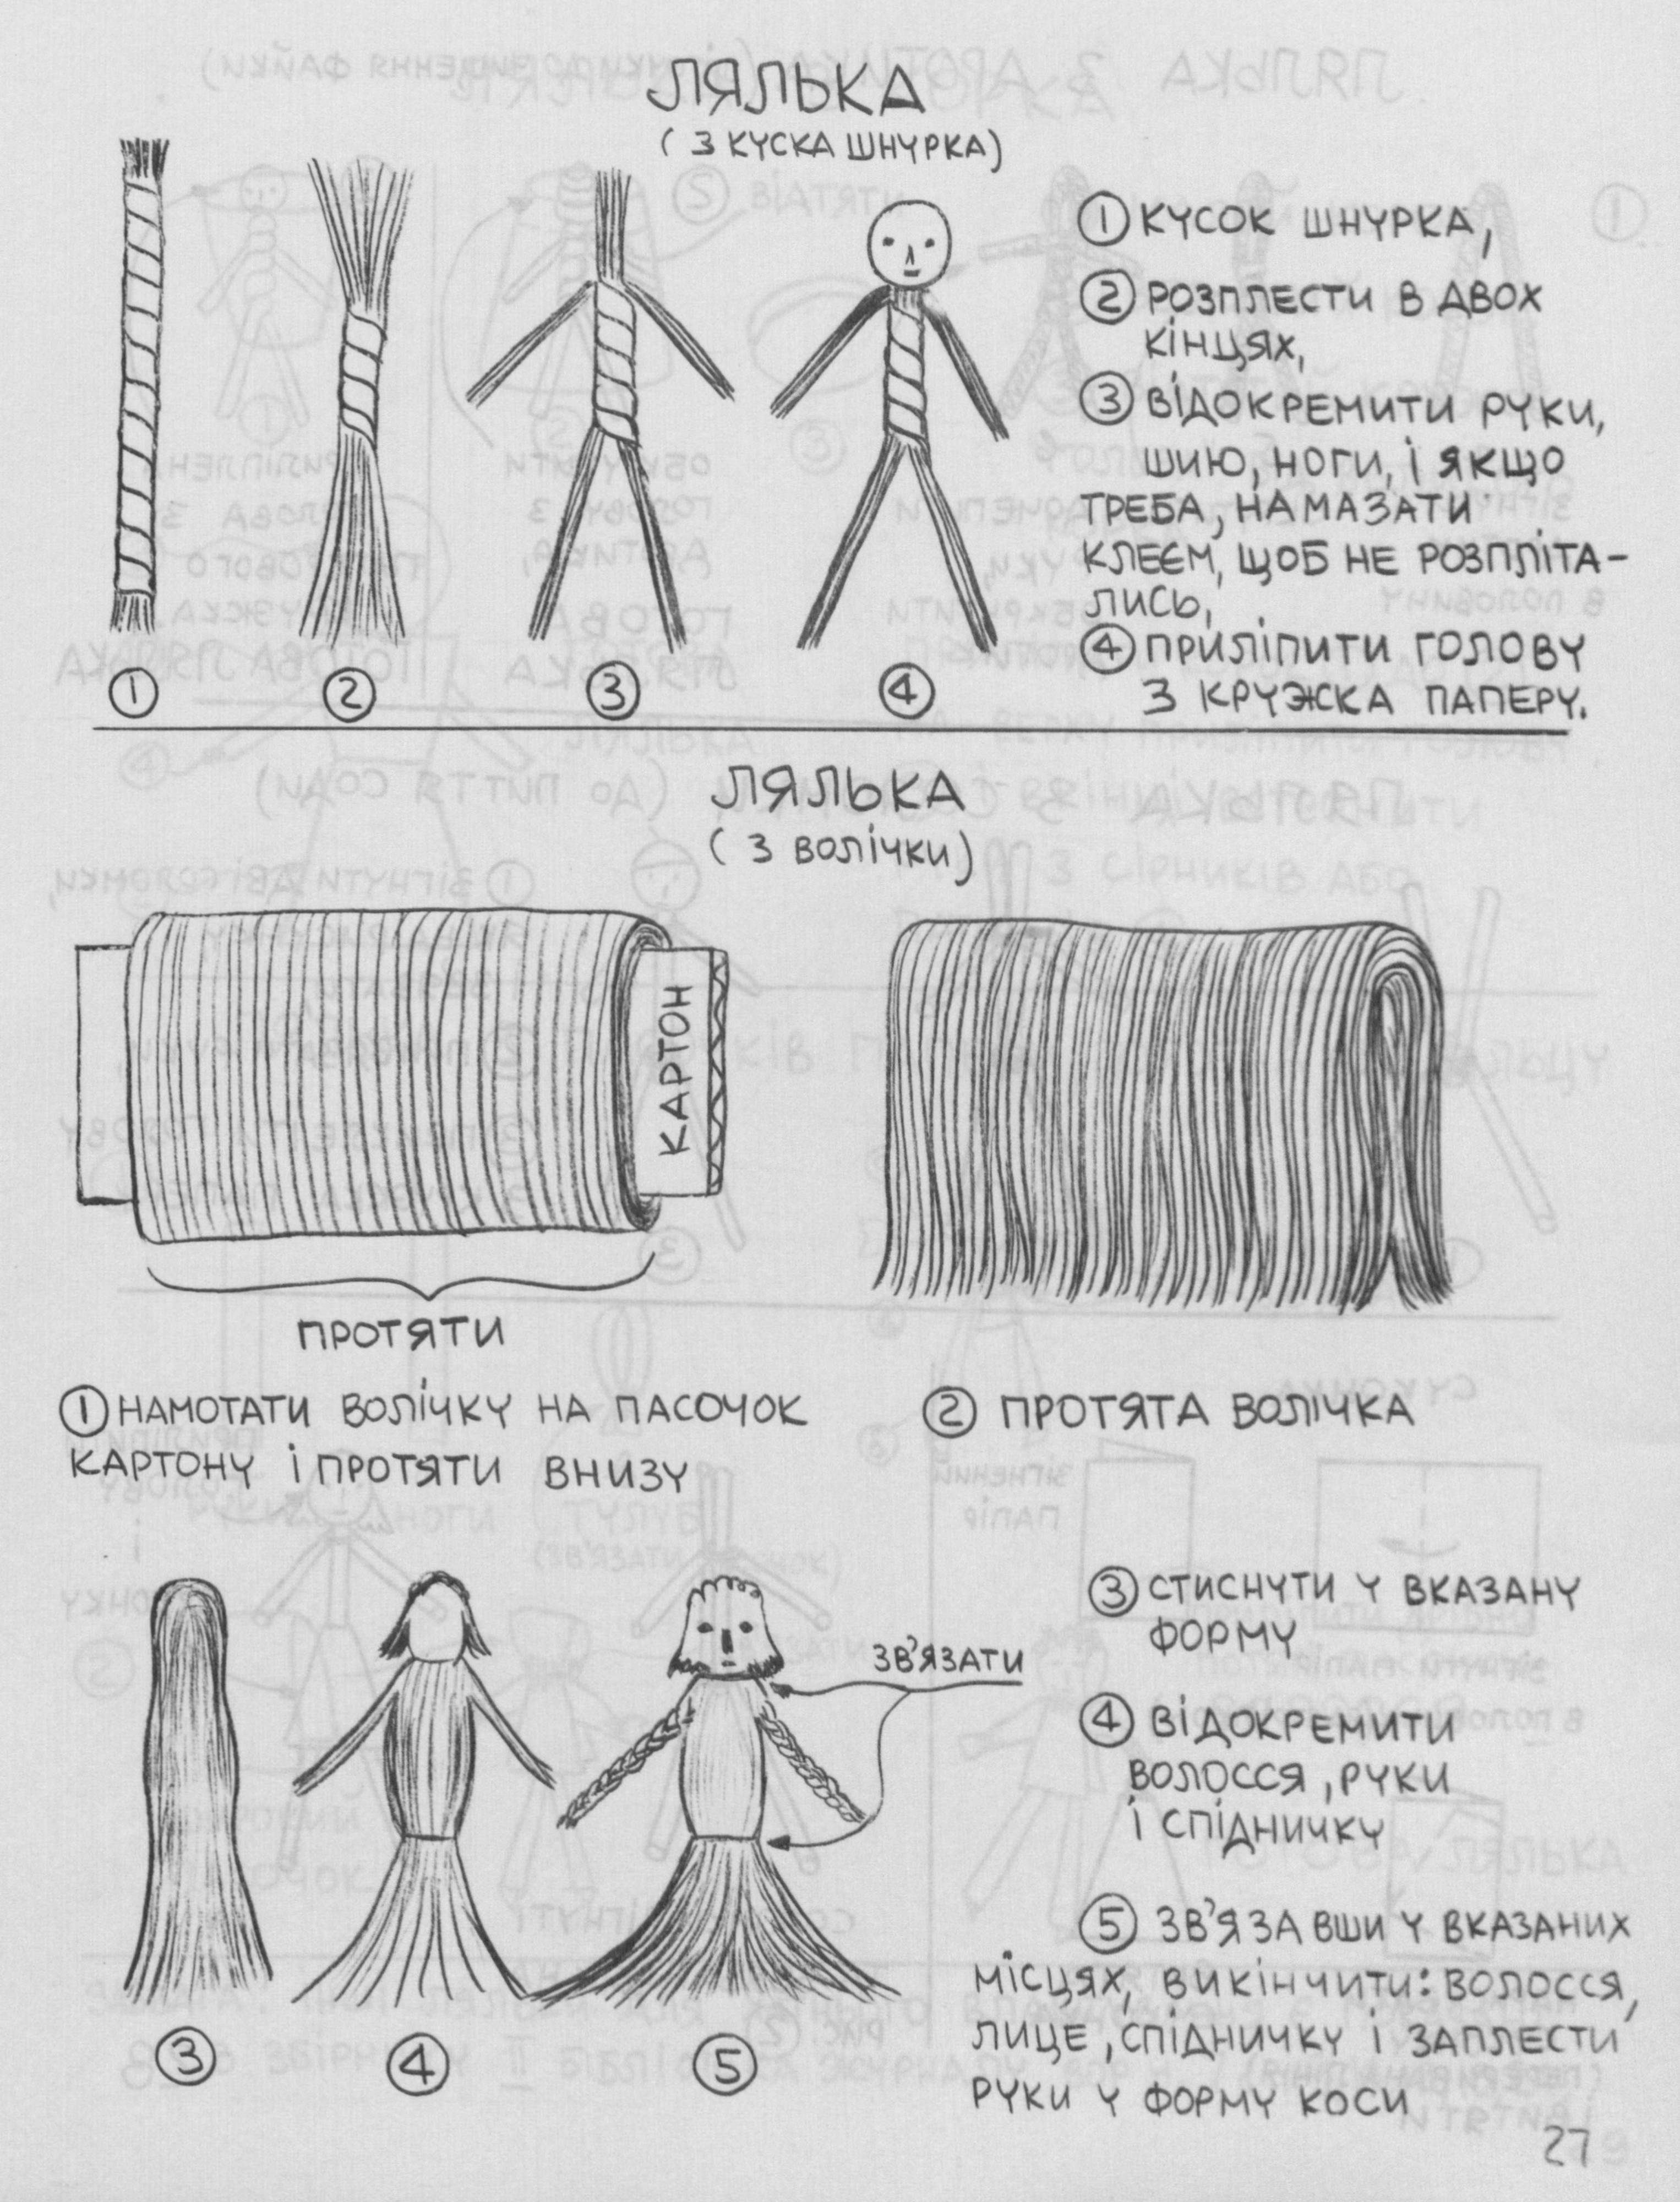 ЛЯЛЬКА
( З КУСКА ШНУРКА)
① КУСОК ШНУРКА,
② РОЗПЛЕСТИ В ДВОХ
КІНЦЯХ,
③ ВІДОКРЕМИТИ РУКИ,
ШИЮ, НОГИ, І ЯКЩО
ТРЕБА, НАМАЗАТИ
КЛЕЄМ, ЩОБ НЕ РОЗПЛІТА-
ЛИСЬ,
④ ПРИЛІПИТИ ГОЛОВУ
З КРУЖКА ПАПЕРУ.
① ② ③ ④
ЛЯЛЬКА
( З ВОЛІЧКИ)
КАРТОН
ПРОТЯТИ
① НАМОТАТИ ВОЛІЧКУ НА ПАСОЧОК
КАРТОНУ І ПРОТЯТИ ВНИЗУ
② ПРОТЯТА ВОЛІЧКА
③ СТИСНУТИ У ВКАЗАНУ
ФОРМУ
ЗВ'ЯЗАТИ
④ ВІДОКРЕМИТИ
ВОЛОССЯ, РУКИ
І СПІДНИЧКУ
⑤ ЗВ'ЯЗАВШИ У ВКАЗАНИХ
МІСЦЯХ, ВИКІНЧИТИ: ВОЛОССЯ,
ЛИЦЕ, СПІДНИЧКУ І ЗАПЛЕСТИ
РУКИ У ФОРМУ КОСИ
③ ④ ⑤
27